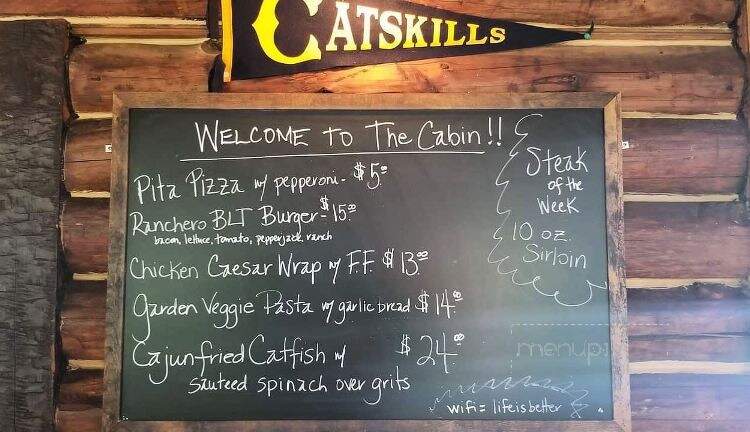 CATSKILLS
WELCOME TO The Cabin!!
Pita Pizza w/ pepperoni - $5.00
Ranchero BLT Burger - $15.00
bacon, lettuce, tomato, pepperjack, ranch
Chicken Caesar Wrap w/ F.F. $13.00
Garden Veggie Pasta w/ garlic bread $14.00
Cajun fried Catfish w/ $24.00
sauteed spinach over grits
Steak
of the
Week
10 oz.
Sirloin
menupi
wifi = lifeisbetter